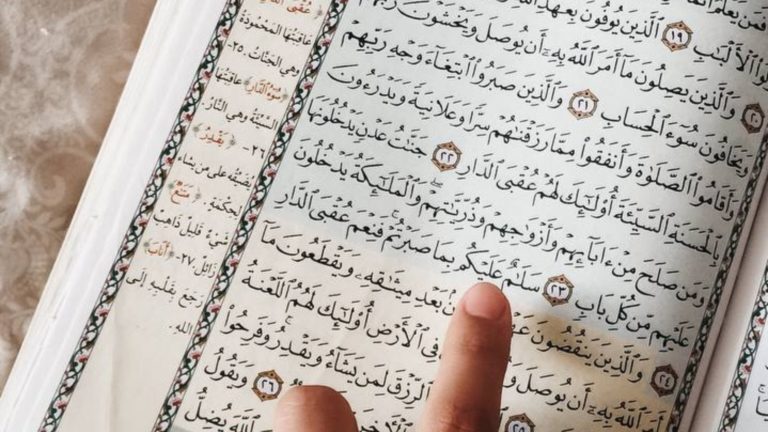 ٱلْأَلْبَٰبِ ١٩ ٱلَّذِينَ يُوفُونَ بِعَهْدِ
٢٠ وَٱلَّذِينَ يَصِلُونَ مَآ أَمَرَ ٱللَّهُ بِهِۦٓ أَن يُوصَلَ وَيَخْشَوْنَ رَبَّهُمْ
وَيَخَافُونَ سُوٓءَ ٱلْحِسَابِ ٢١ وَٱلَّذِينَ صَبَرُوا۟ ٱبْتِغَآءَ وَجْهِ رَبِّهِمْ
وَأَقَامُوا۟ ٱلصَّلَوٰةَ وَأَنفَقُوا۟ مِمَّا رَزَقْنَٰهُمْ سِرًّا وَعَلَانِيَةً وَيَدْرَءُونَ
بِٱلْحَسَنَةِ ٱلسَّيِّئَةَ أُو۟لَٰٓئِكَ لَهُمْ عُقْبَى ٱلدَّارِ ٢٢ جَنَّٰتُ عَدْنٍ يَدْخُلُونَهَا
وَمَن صَلَحَ مِنْ ءَابَآئِهِمْ وَأَزْوَٰجِهِمْ وَذُرِّيَّٰتِهِمْ وَٱلْمَلَٰٓئِكَةُ يَدْخُلُونَ
عَلَيْهِم مِّن كُلِّ بَابٍ ٢٣ سَلَٰمٌ عَلَيْكُم بِمَا صَبَرْتُمْ فَنِعْمَ عُقْبَى ٱلدَّارِ
٢٤ وَٱلَّذِينَ يَنقُضُونَ بَعْدِ مِيثَٰقِهِۦ وَيَقْطَعُونَ مَآ
أَمَرَ ٱللَّهُ بِهِۦٓ أَن يُوصَلَ فِى ٱلْأَرْضِ أُو۟لَٰٓئِكَ لَهُمُ ٱللَّعْنَةُ
٢٥ ٱلرِّزْقَ لِمَن يَشَآءُ وَيَقْدِرُ وَفَرِحُوا۟
٢٦ وَيَقُولُ
ٱللَّهَ يُضِلُّ
عَاقِبَتُهَا المَحْمُودَةُ
وهي الجَنَّاتُ. ٢٥-
﴿سُوٓءُ ٱلدَّارِ﴾ عاقِبَتُها
السَّيِّئَةُ وهي النَّارُ.
٢٦- ﴿يَقْدِرُ﴾
يُضَيِّقُهُ على من يشاء
لحِكمة. ﴿مَتَٰعٌ﴾
شيءٌ قليل ذاهبٌ
زائل. ٢٧- ﴿أَنَابَ﴾
رَجَعَ بِقَلْبِهِ إلى
الله.